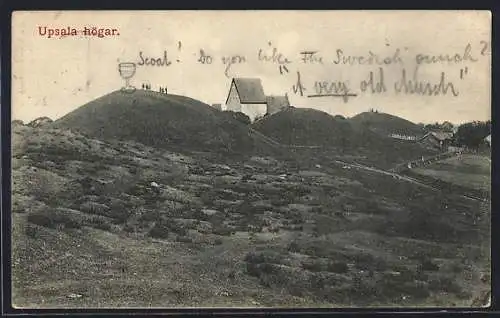 Upsala högar.
Scoal! Do you like the Swedish punch?
"A very old church"